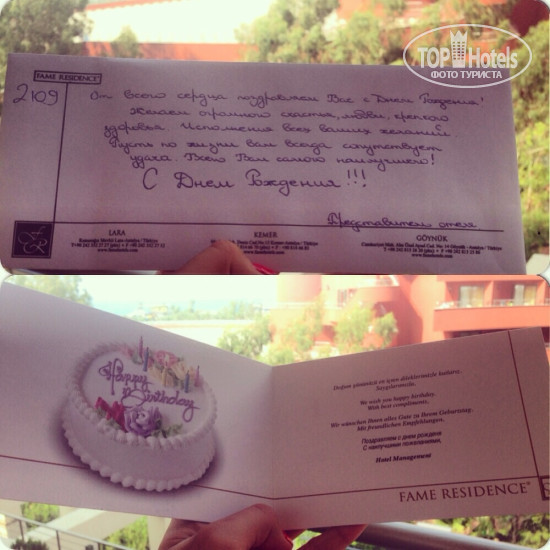 TOP Hotels
ФОТО ТУРИСТА
FAME RESIDENCE
2109
От всего сердца поздравляем Вас с Днем Рождения!
Желаем огромного счастья, любви, крепкого
здоровья. Исполнения всех ваших желаний.
Пусть по жизни вам всегда сопутствует
удача. Всего Вам самого наилучшего!
С Днем Рождения!!!
Представители отеля
LARA
KEMER
GÖYNÜK
Happy
Birthday
Doğum gününüzü en içten dileklerimizle kutlarız.
Saygılarımızla.
We wish you happy birthday.
With best compliments.
Wir wünschen Ihnen alles Gute zu Ihrem Geburtstag.
Mit freundlichen Empfehlungen.
Поздравляем с днем рождения
С наилучшими пожеланиями,
Hotel Management
FAME RESIDENCE